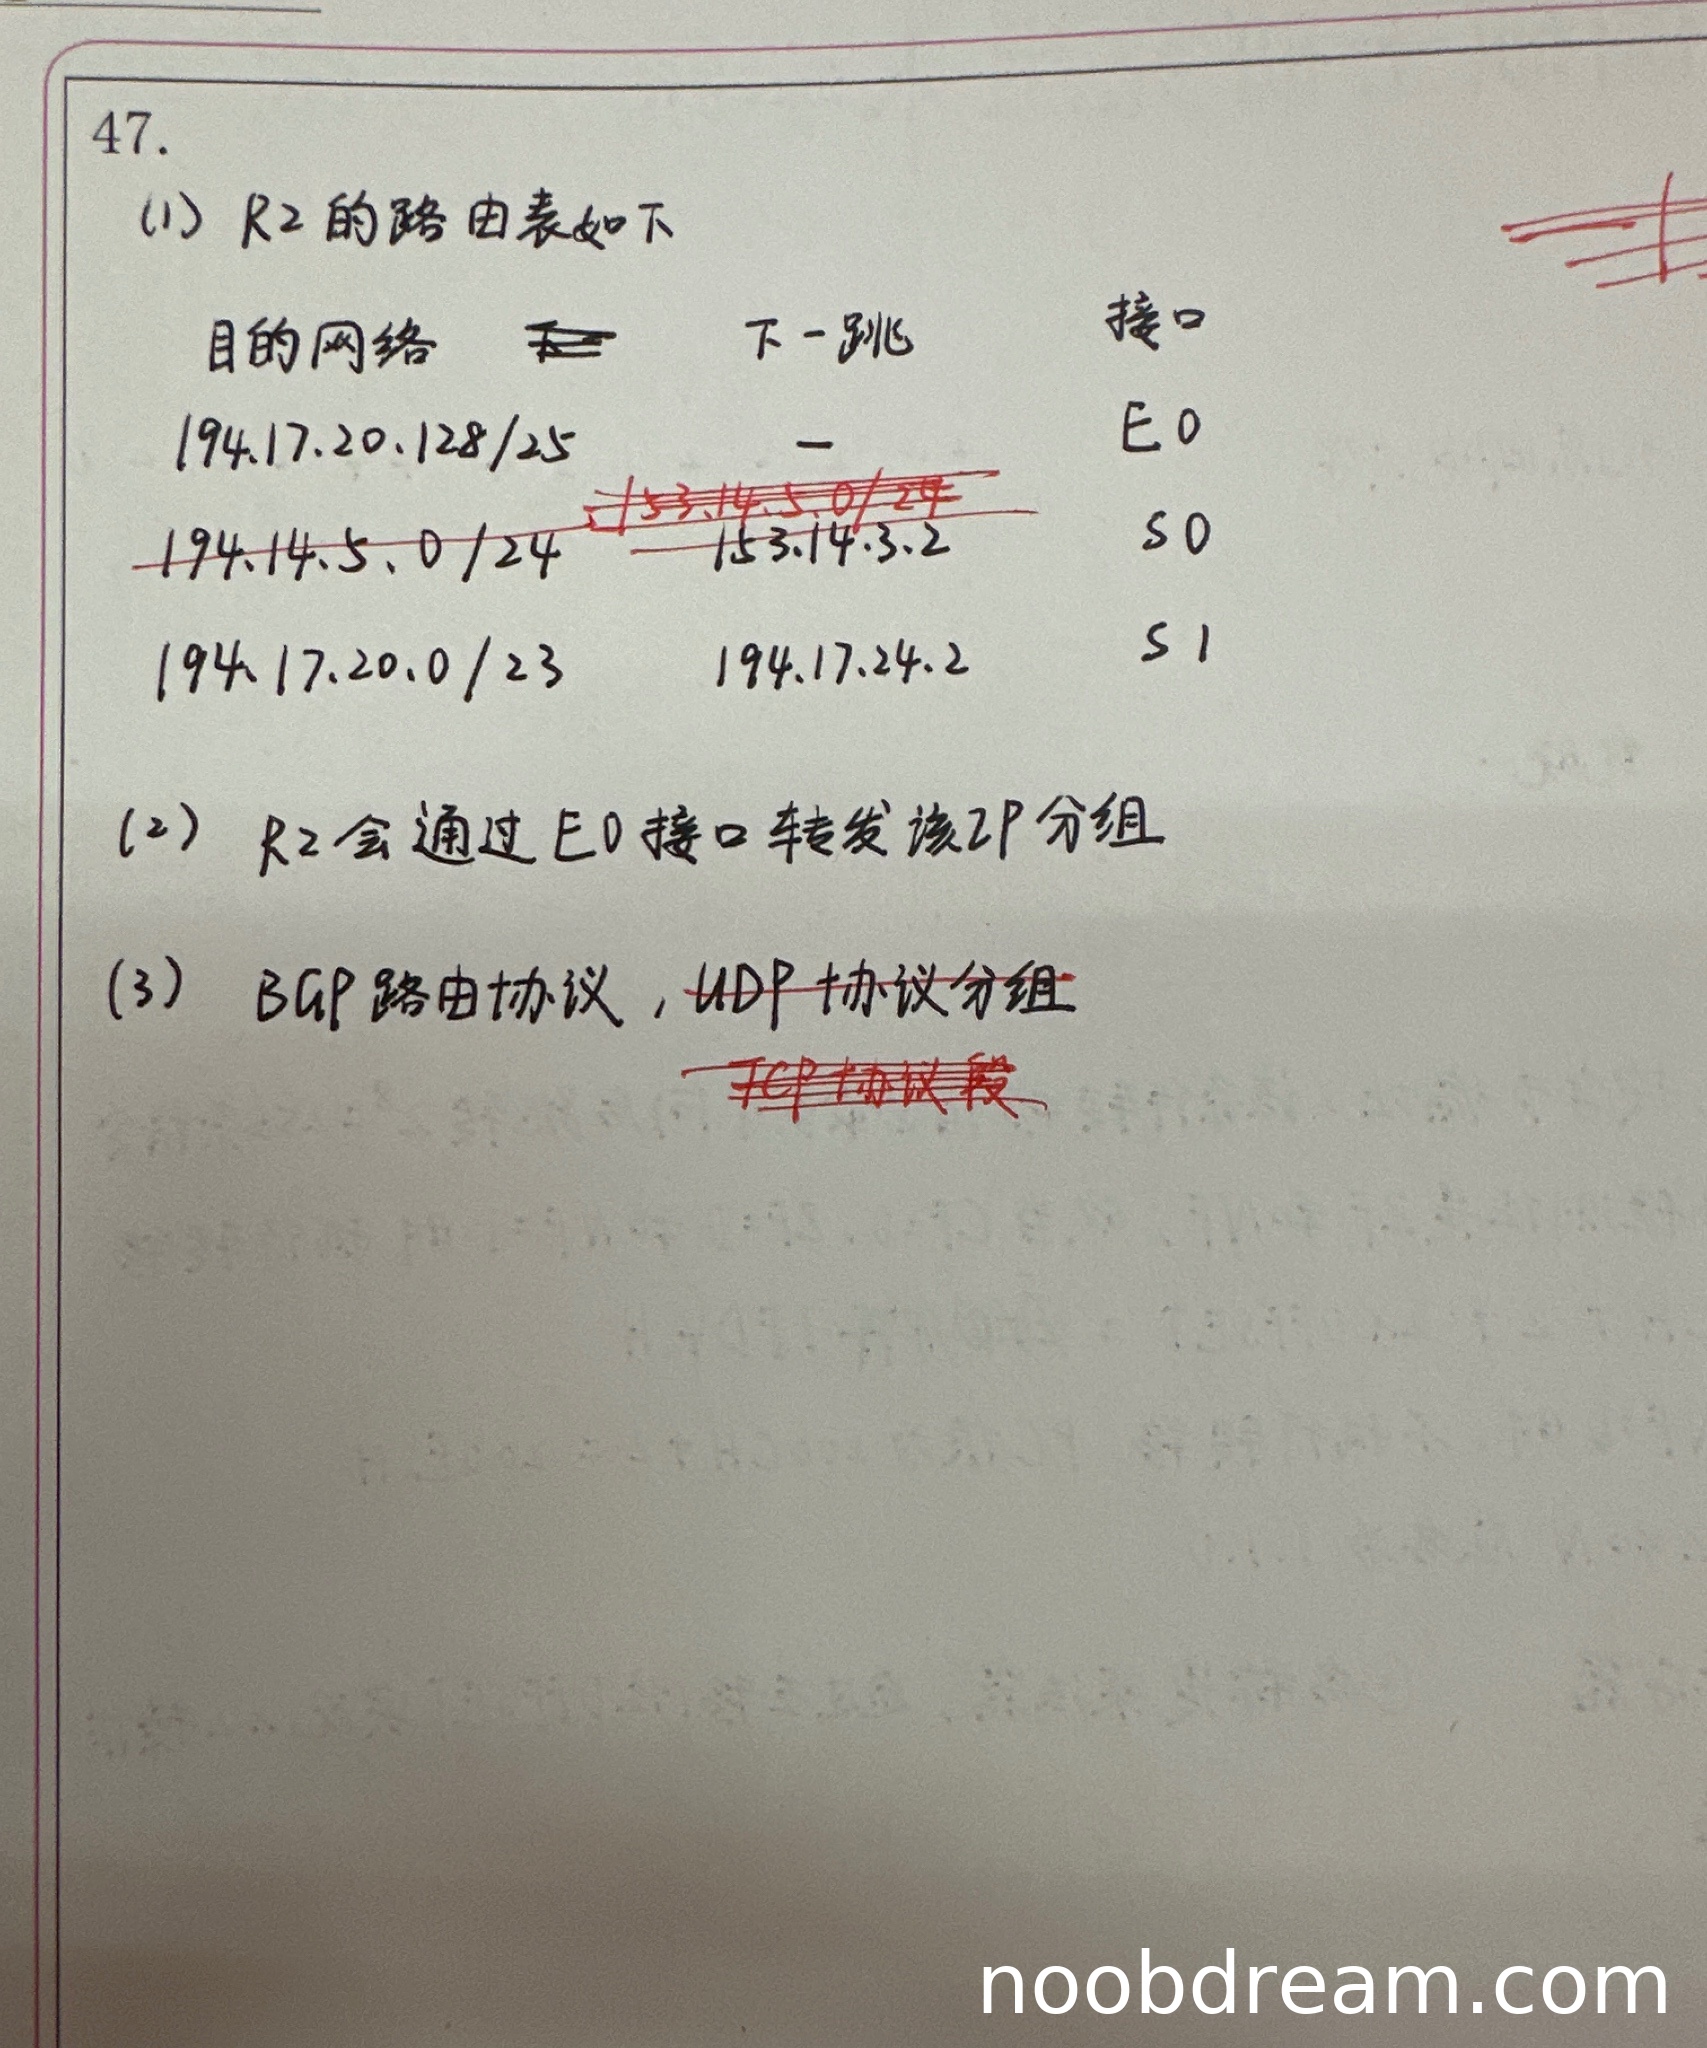 47.
(1) R2的路由表如下
目的网络 下一跳 接口
194.17.20.128/25 — E0
153.14.5.0/24
194.14.5.0/24 153.14.3.2 S0
194.17.20.0/23 194.17.24.2 S1
(2) R2会通过E0接口转发该IP分组
(3) BGP路由协议，UDP协议分组
TCP协议段
noobdream.com